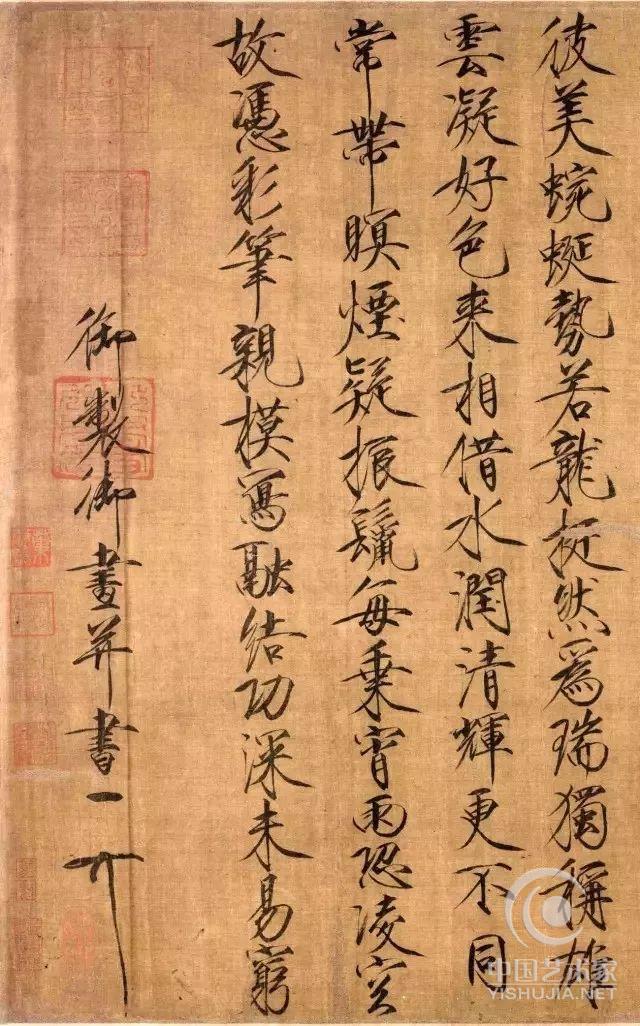 彼美蜿蜒勢若龍挺然爲瑞獨稱雄
雲凝好色来相借水潤清輝更不同
常帶瞑煙疑振鬣每乗宵雨恐凌空
故憑彩筆親模寫融結功深未易窮
御製御畫并書
中国艺术家
YISHUJIA.NET